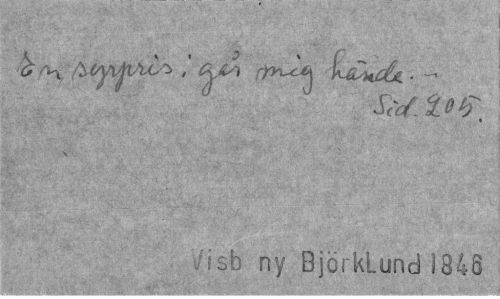 En syrpris i går mig hände. –
Sid. 205.
Visb ny BjörkLund 1846